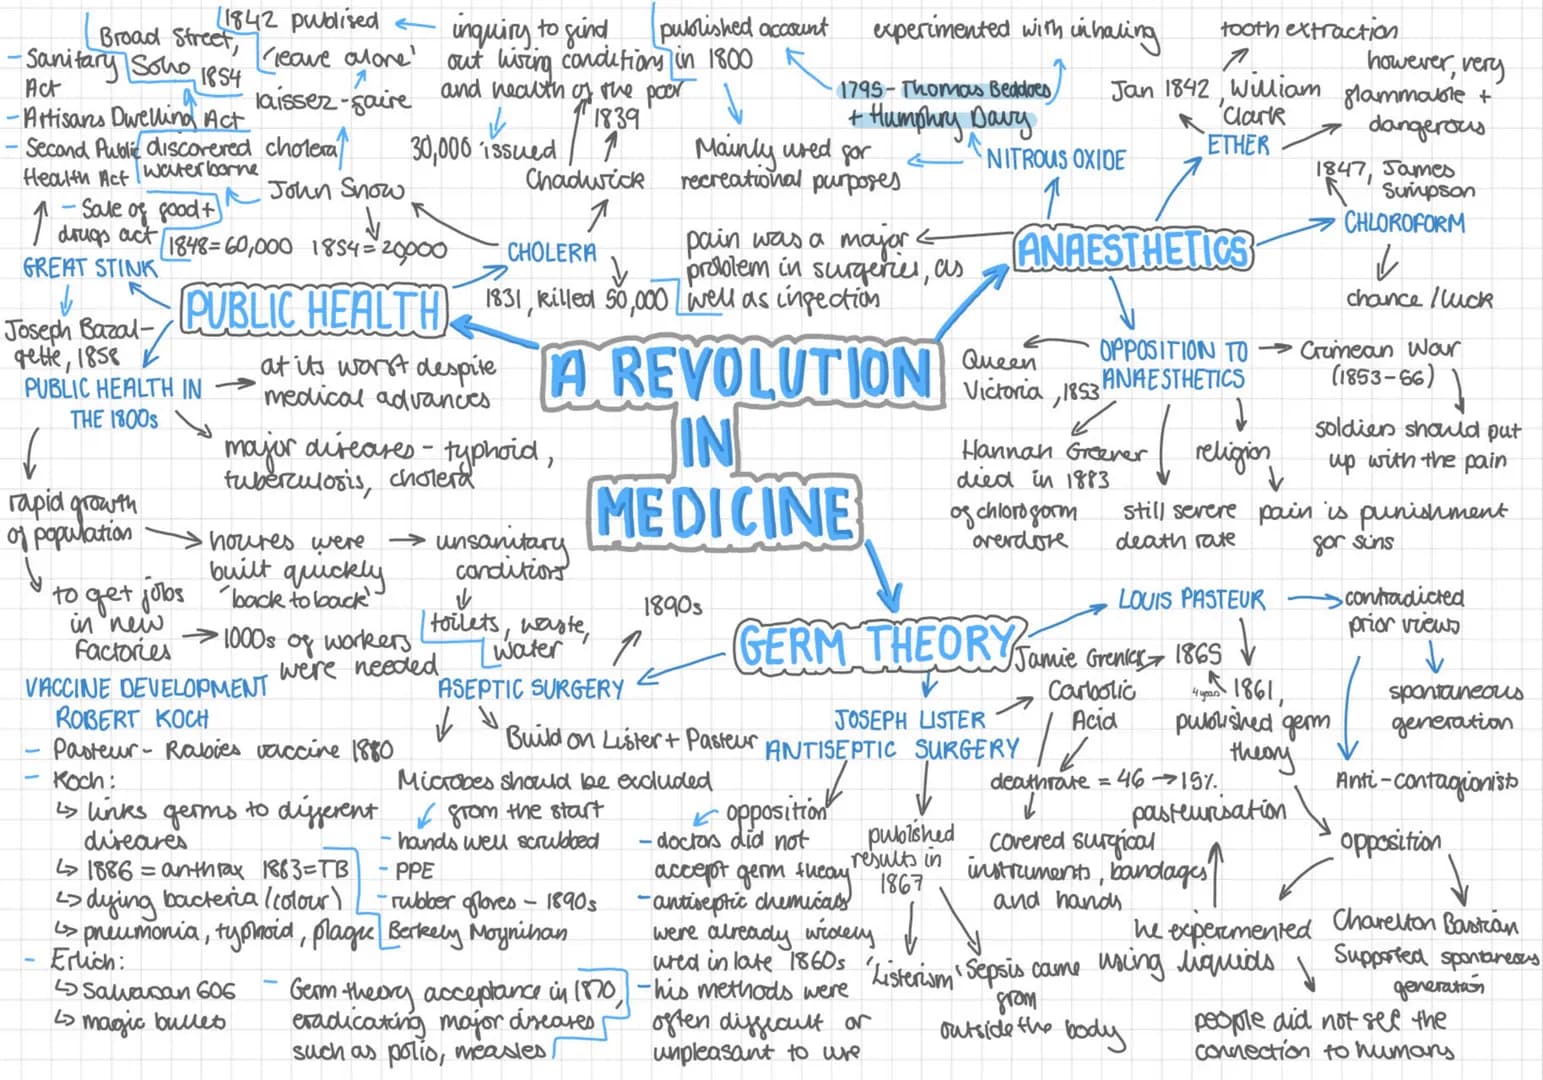 A REVOLUTION
IN
MEDICINE
PUBLIC HEALTH
CHOLERA
1831, killed 50,000
Chadwick
1839
inquiry to find
out living conditions
and health of the poor
30,000 issued
1842 publised
'leave alone'
laissez-faire
John Snow
1848=60,000 1854=20,000
discovered cholera
waterborne
Broad Street,
Soho 1854
GREAT STINK
- Sanitary
Act
- Artisans Dwelling Act
- Second Public
Health Act
- Sale of food +
drugs act
Joseph Bazal-
gette, 1858
PUBLIC HEALTH IN
THE 1800s
at its worst despite
medical advances
major diseases - typhoid,
tuberculosis, cholera
rapid growth
of population
houses were
built quickly
'back to back'
unsanitary
conditions
toilets, waste,
water
to get jobs
in new
factories
1000s of workers
were needed
ANAESTHETICS
pain was a major
problem in surgeries, as
well as infection
NITROUS OXIDE
1795 - Thomas Beddoes
+ Humphry Davy
published account
in 1800
experimented with inhaling
Mainly used for
recreational purposes
ETHER
Jan 1842, William
Clark
tooth extraction
however, very
flammable +
dangerous
CHLOROFORM
1847, James
Simpson
chance / luck
OPPOSITION TO
ANAESTHETICS
Queen
Victoria, 1853
Crimean War
(1853-56)
soldiers should put
up with the pain
Hannah Greener
died in 1883
of chloroform
overdose
still severe
death rate
religion
pain is punishment
for sins
GERM THEORY
LOUIS PASTEUR
contradicted
prior views
spontaneous
generation
Anti-contagionists
1861,
published germ
theory
4 years
1865
Jamie
opposition
Charelton Bastian
Supported spontaneous
generation
he experimented
using liquids
pasteurisation
people did not see the
connection to humans
JOSEPH LISTER
ANTISEPTIC SURGERY
Carbolic
Acid
deathrate = 46 → 15%
covered surgical
instruments, bandages
and hands
published
results in
1867
'Listerism'
Sepsis came
from
outside the body
opposition
- doctors did not
accept germ theory
- antiseptic chemicals
were already widely
used in late 1860s
- his methods were
often difficult or
unpleasant to use
ASEPTIC SURGERY
1890s
Build on Lister + Pasteur
Microbes should be excluded
from the start
- hands well scrubbed
- PPE
- rubber gloves - 1890s
Berkely Moynihan
VACCINE DEVELOPMENT
ROBERT KOCH
- Pasteur - Rabies vaccine 1880
- Koch:
↳ links germs to different
diseases
↳ 1886 = anthrax 1883=TB
↳ dying bacteria (colour)
↳ pneumonia, typhoid, plague
- Erlich:
↳ Salvarsan 606
↳ magic bullets
- Germ theory acceptance in 1870,
eradicating major diseases
such as polio, measles